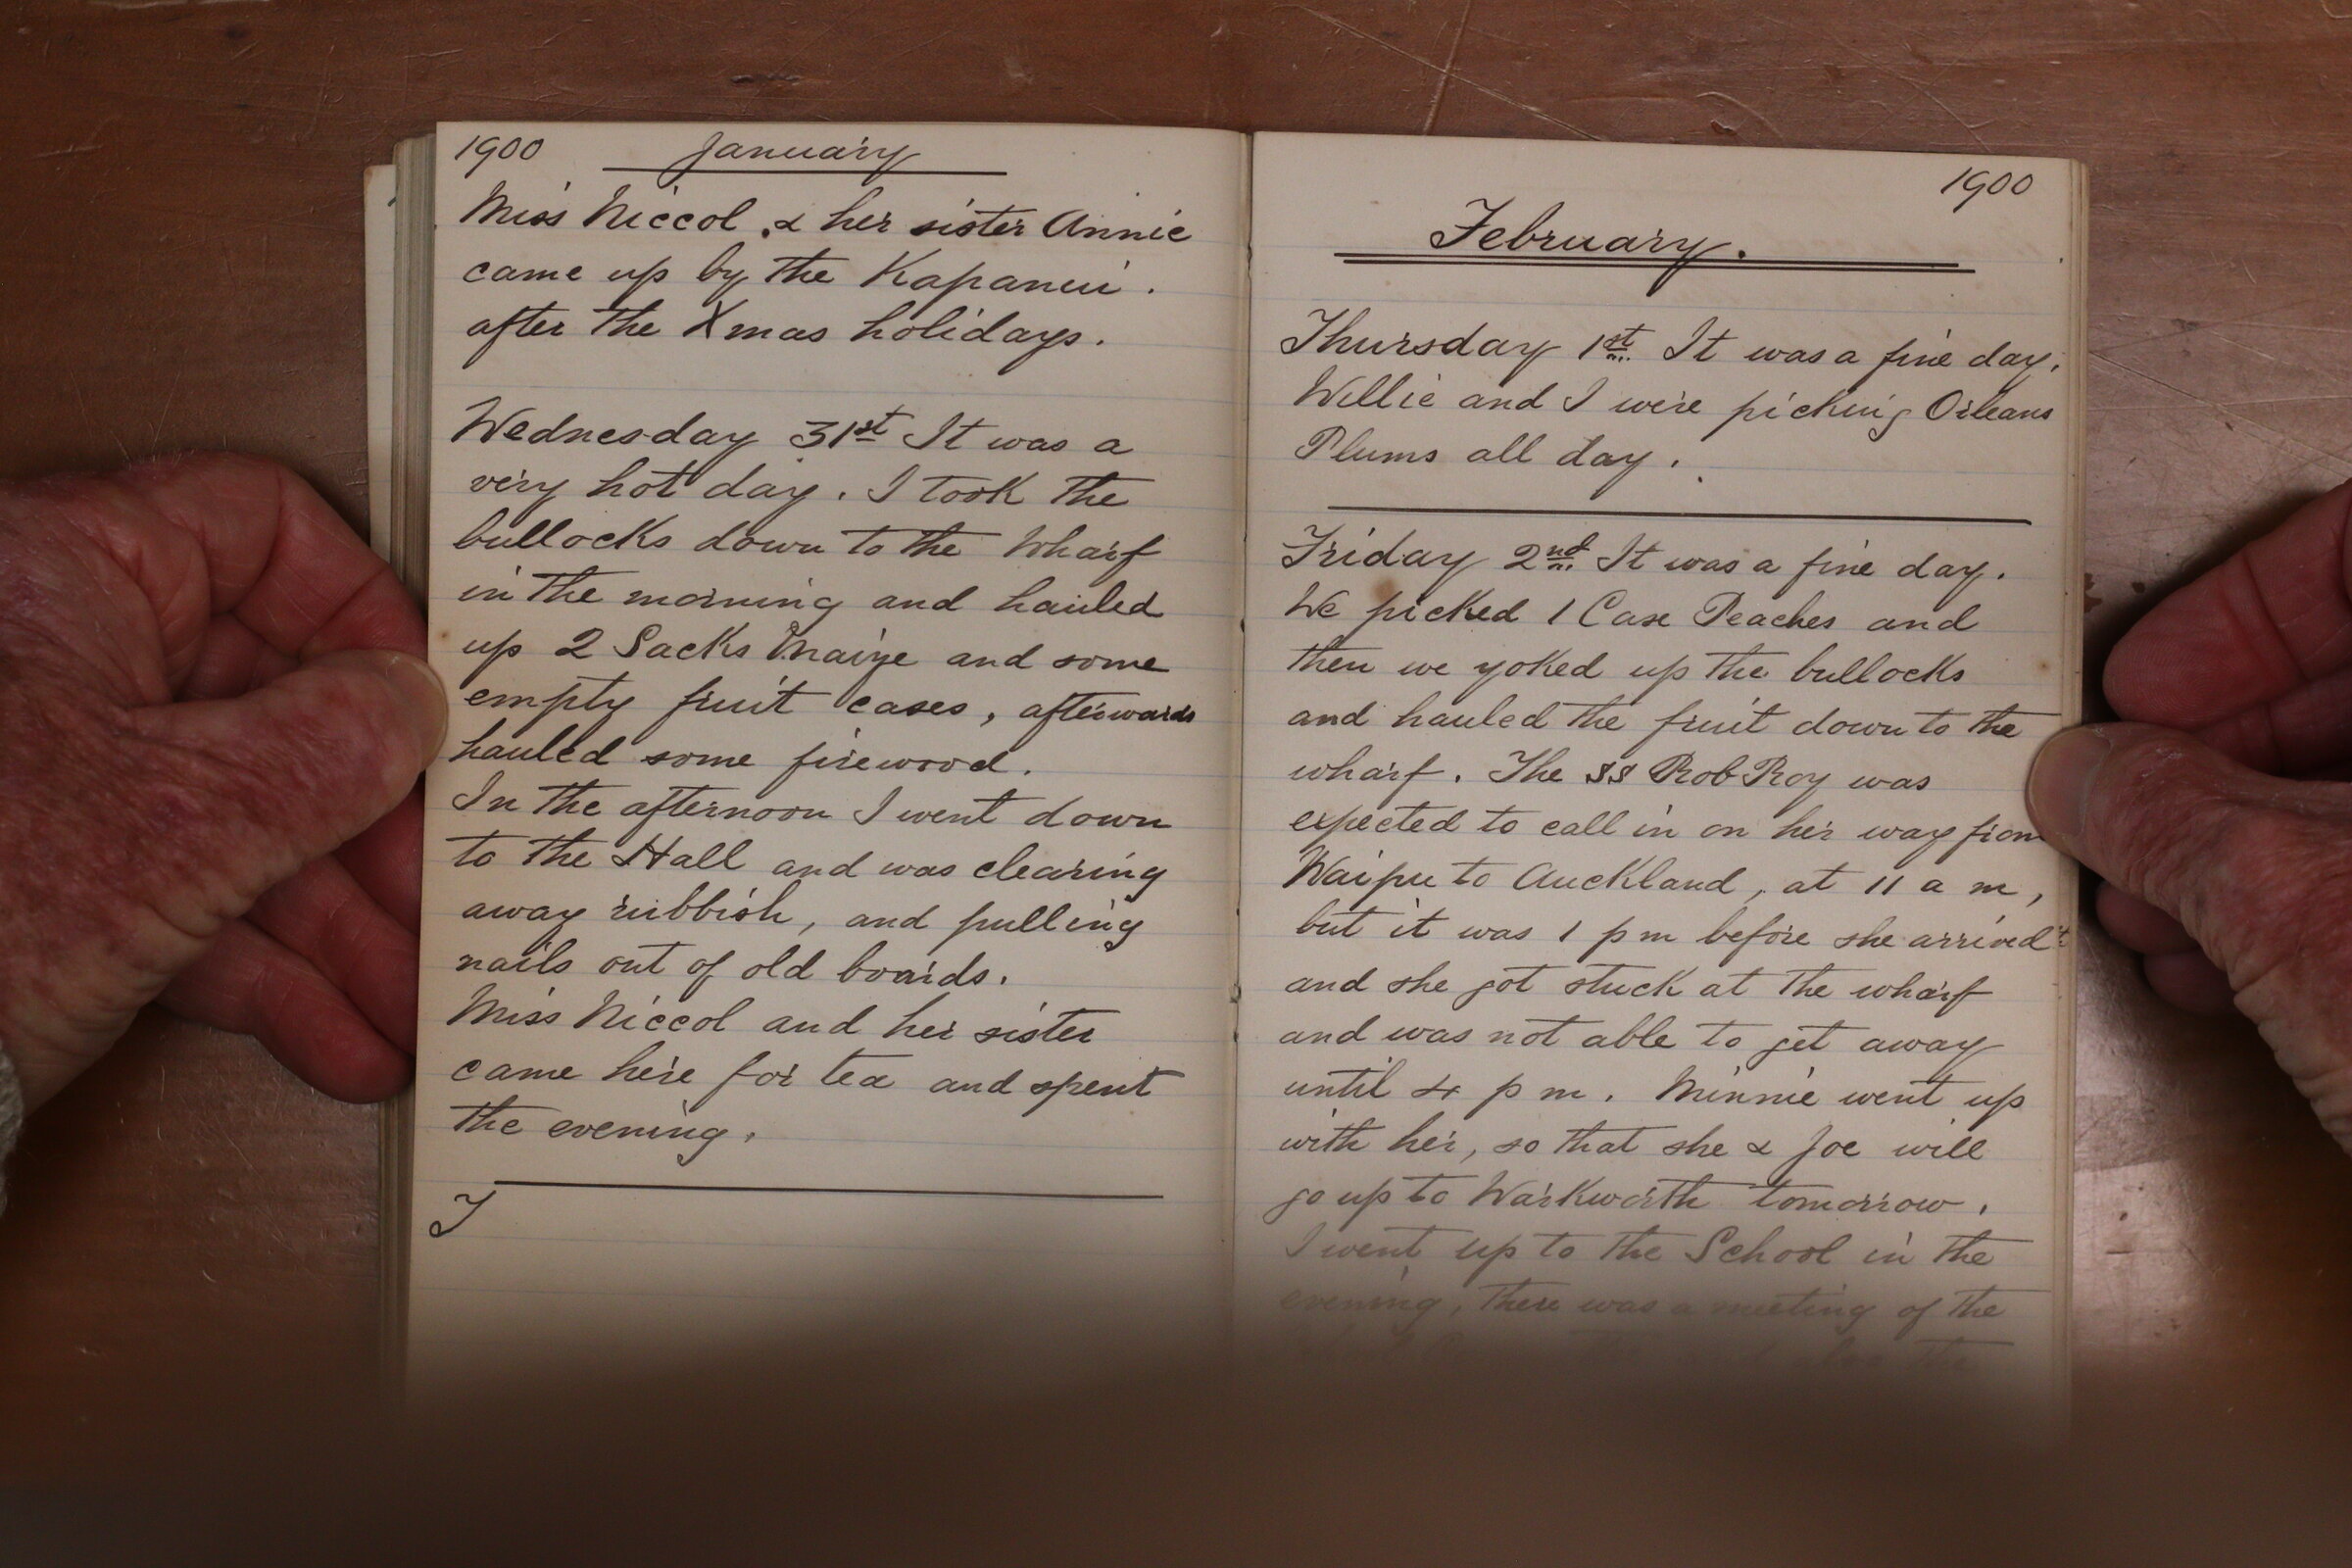 1900 January
Miss Niccol & her sister Annie
came up by the Kapanui.
after the Xmas holidays.
Wednesday 31st It was a
very hot day. I took the
bullocks down to the Wharf
in the morning and hauled
up 2 Sacks Maize and some
empty fruit cases, afterwards
hauled some firewood.
In the afternoon I went down
to the Hall and was clearing
away rubbish, and pulling
nails out of old boards.
Miss Niccol and her sister
came here for tea and spent
the evening.
1900
February.
Thursday 1st. It was a fine day.
Willie and I were picking Orleans
Plums all day.
Friday 2nd. It was a fine day.
We picked 1 Case Peaches and
then we yoked up the bullocks
and hauled the fruit down to the
wharf. The SS Rob Roy was
expected to call in on her way from
Waipu to Auckland, at 11 a m,
but it was 1 p m before she arrived
and she got stuck at the wharf
and was not able to get away
until 4 p m. Minnie went up
with her, so that she & Joe will
go up to Warkworth tomorrow.
I went up to the School in the
evening, there was a meeting of the